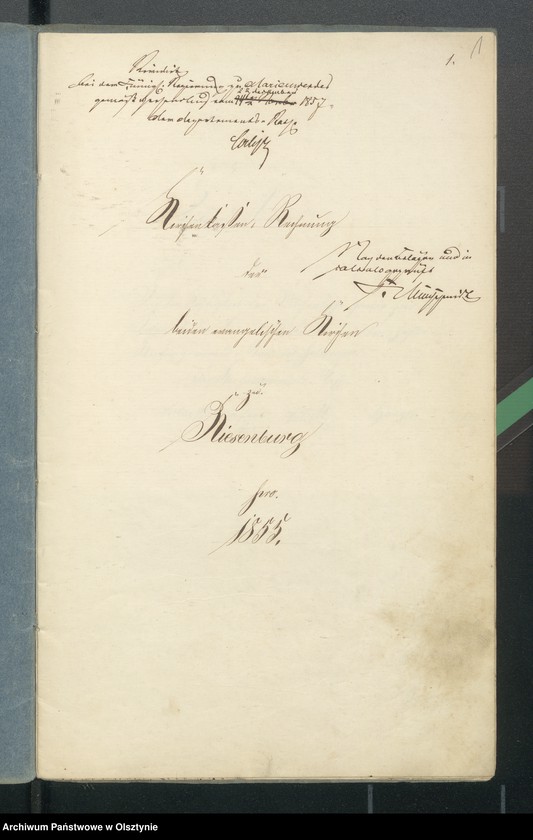 1.
1
Revidirt
bei der Königl. Regierung zu Marienwerder
gemäß Verfügung vom
1857.
Der Departements-Rath
Kirchenkassen-Rechnung
der
Nach den Belägen und in
calculo geprüft
beiden evangelischen Kirchen
zu
Riesenburg
pro.
1855.
Archiwum Państwowe w Olsztynie